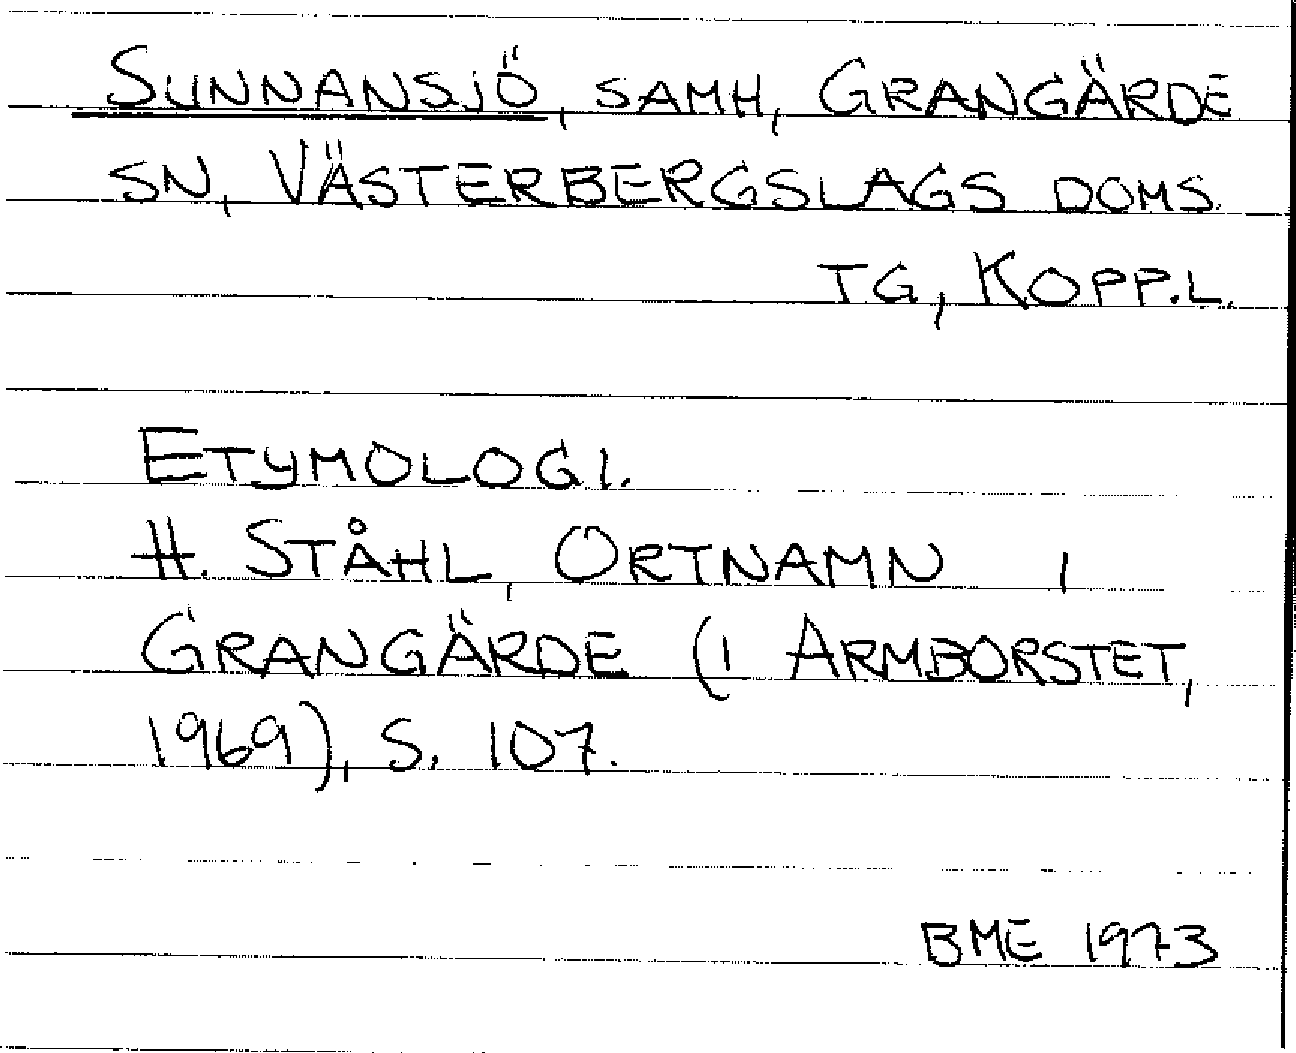 SUNNANSJÖ, SAMH, GRANGÄRDE
SN, VÄSTERBERGSLAGS DOMS.
TG, KOPP.L.
ETYMOLOGI.
H. STÅHL, ORTNAMN I
GRANGÄRDE (I ARMBORSTET,
1969), S. 107.
BME 1973